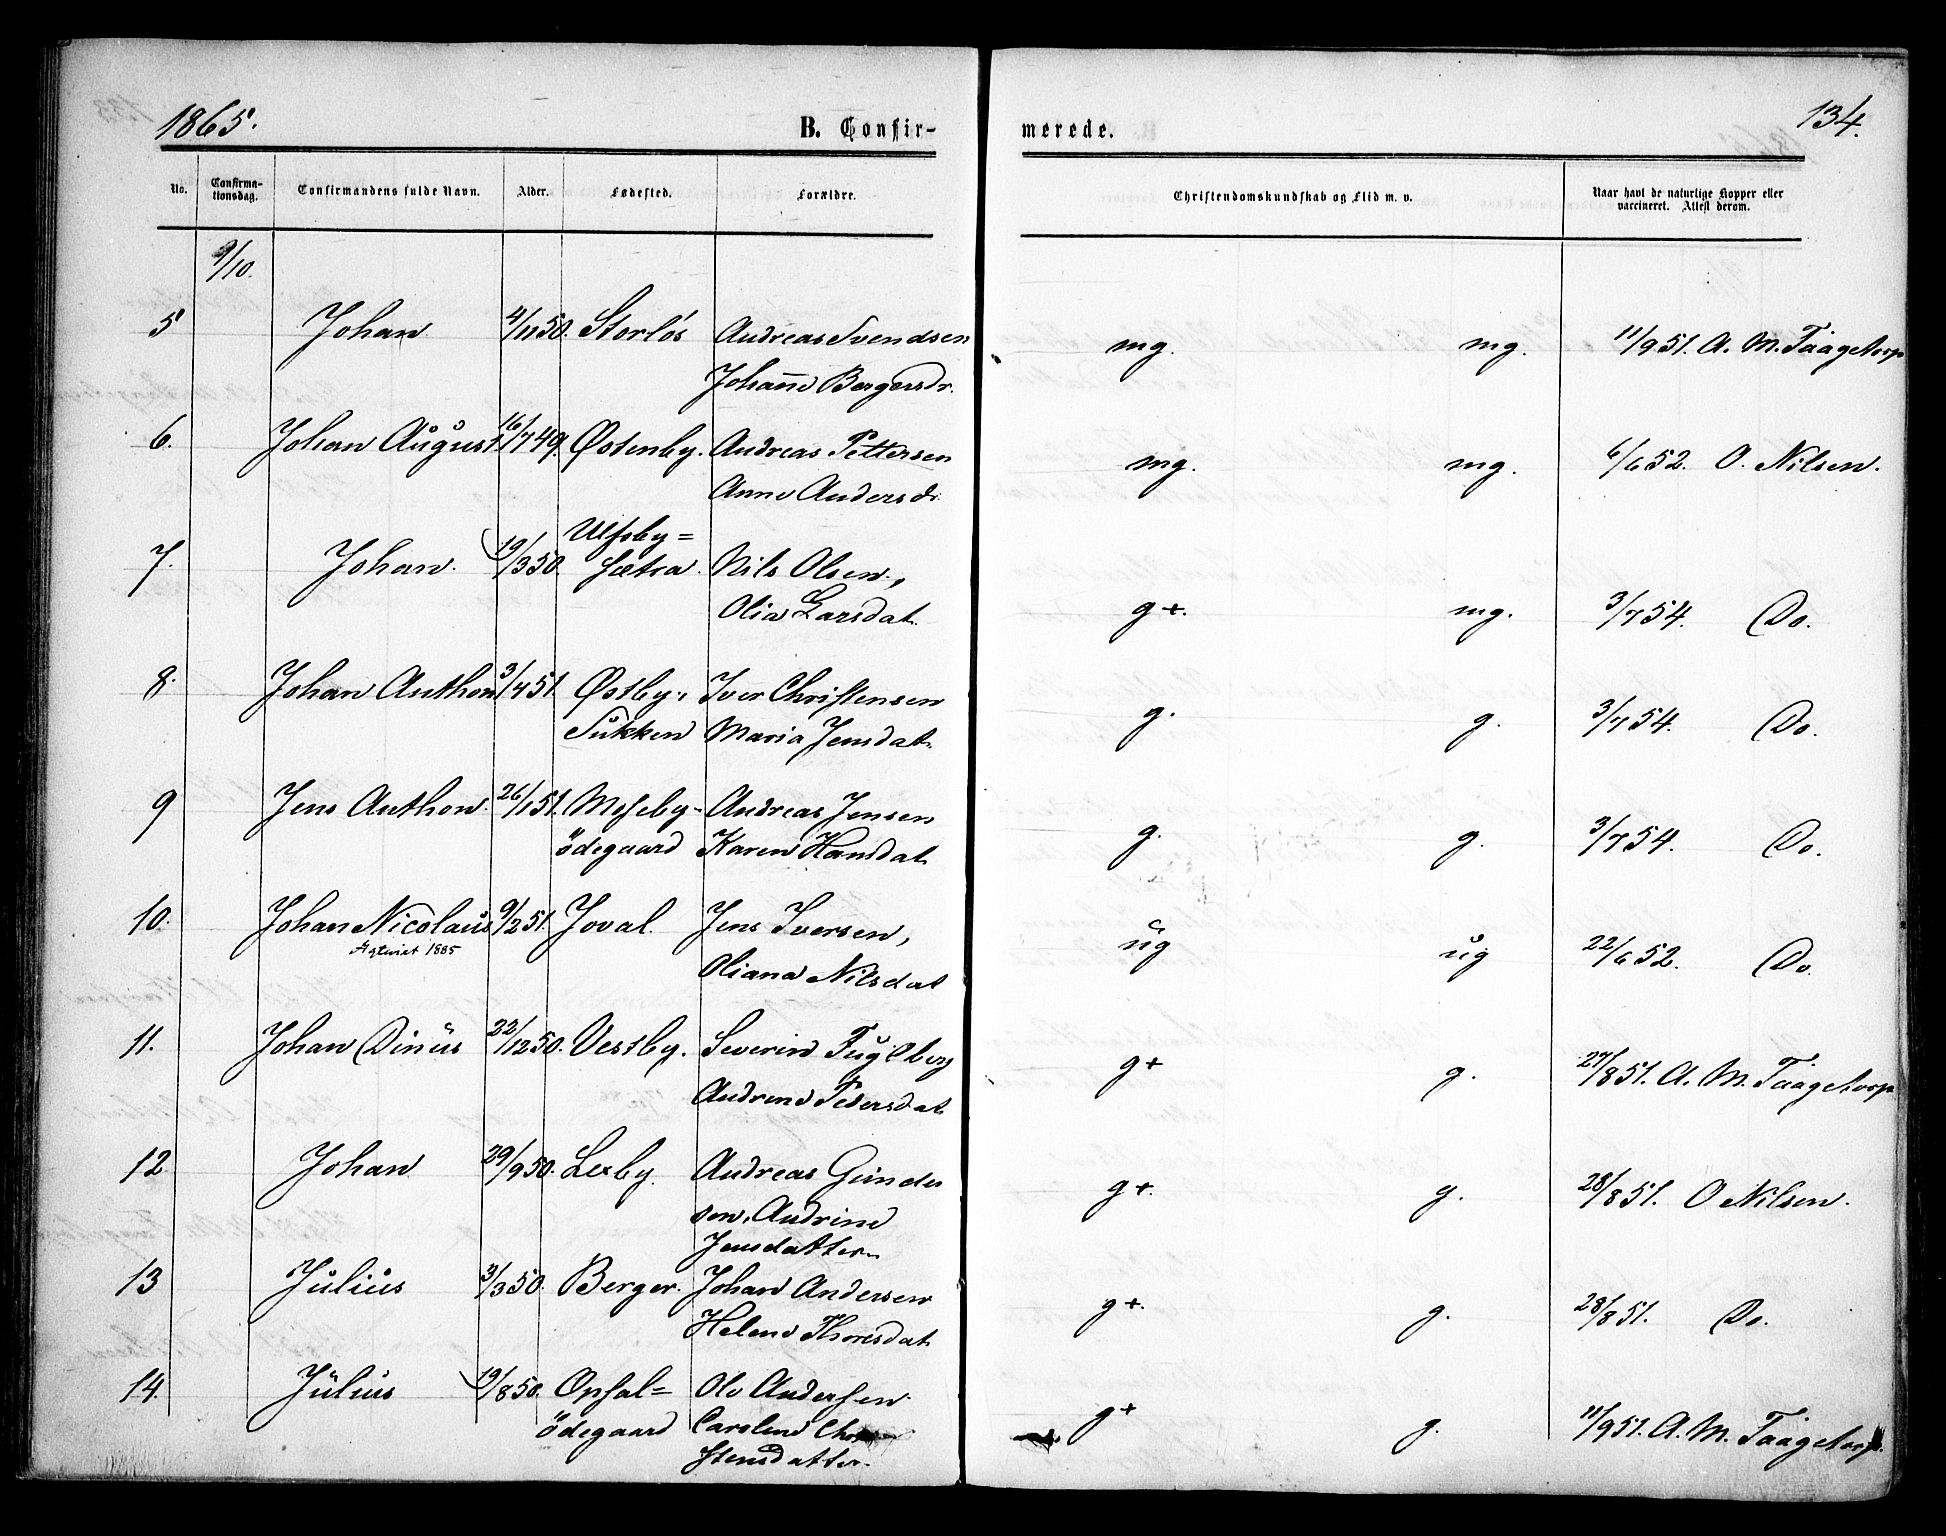 1865.
B. Confir-
merede.
134.
No.
Confirma-
tionsdag.
Confirmandens fulde Navn.
Alder.
Fødested.
Forældre.
Christendomskundskab og Flid m. v.
Naar havt de naturlige Kopper eller
vaccineret. Attest derom.
9/10.
5 Johan 4/11 50. Storlös Andreas Svendsen mg. mg. 11/9 51. A. M. Taagetorp
Johanne Bergersdr.
6. Johan August 16/7 49. Østenby. Andreas Pettersen mg. mg. 6/6 52. O. Nilsen.
Anne Andersdr.
Ulfsby=
7. Johan. 19/3 50. Sætra. Nils Olsen, g+. mg. 3/7 54. Do.
Olia Larsdat.
8. Johan Anthon 3/4 51. Østby, Iver Christensen g. g. 3/7 54. Do.
Maria Jensdat.
9 Jens Anthon. 26/1 51. Moseby- Andreas Jensen g. g. 3/7 54. Do.
ödegaard Karen Hansdat.
10. Johan Nicolaus 9/2 51. Joval. Jens Iversen, ug ug 22/6 52. Do.
1885
Oliana Nilsdat
11. Johan Dinus 22/12 50. Vestby. Severin Fuglberg g+ g. 27/8 51. A. M. Taagetorp
Andrine Pedersdat.
12 Johan 29/9 50. Lexby. Andreas Gunder g+. g. 28/8 51. O Nilsen.
sen, Andrine
Jensdatter.
13 Julius 3/3 50. Berger. Johan Andersen g+. g. 28/8 51. Do.
Helene Thoresdat.
14. Julius 19/8 50. Opsal= Ole Andersen g+ g. 11/9 51. A. M. Taagetorp.
ödegaard Caroline Chri
stensdatter.